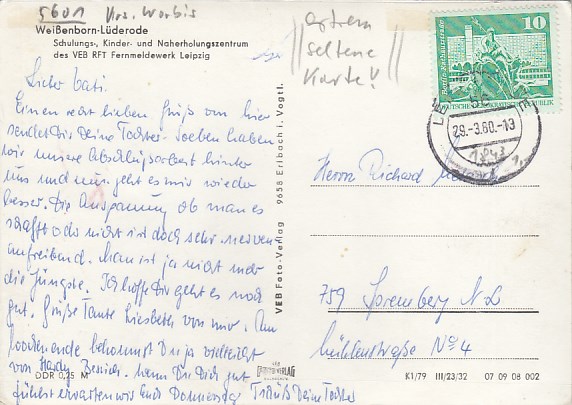 5601 Krs. Worbis
Weißenborn-Lüderode
Schulungs-, Kinder- und Naherholungszentrum
des VEB RFT Fernmeldewerk Leipzig
extrem
seltene
Karte!
10
Berlin-Rathausstraße
DEUTSCHE DEMOKRATISCHE REPUBLIK
29.-3.80.-13
Lieber Vati.
Einen recht lieben Gruß von hier
sendet Dir Deine Tochter. Soeben haben
wir unsere Abschlußarbeit hinter
uns und nun geht es mir wieder
besser. Die Anspannung ob man es
schafft oder nicht ist doch sehr nerven-
aufreibend. Man ist ja nicht mehr
die Jüngste. Ich hoffe Dir geht es noch
gut. Grüße Tante Liesbeth von mir. Am
Wochenende bekommst Du ja vielleicht
von Hardy Besuch. Wenn Du Dich gut
fühlst erwarten wir Euch Donnerstag. Tschüß Deine Tochter
DDR 0,25 M
VEB Foto-Verlag 9658 Erlbach i. Vogtl.
Herrn Richard
759 Spremberg N.L
Mühlenstraße No 4
K1/79 III/23/32 07 09 08 002